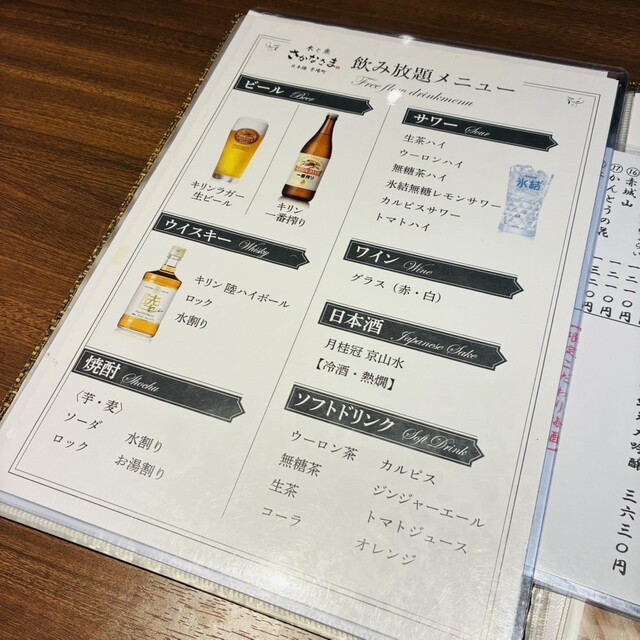 水と魚
さかなさま
日本橋 茅場町
飲み放題メニュー
Free flow drinkmenu
ビール Beer
キリンラガー
生ビール
キリン
一番搾り
ウイスキー Whisky
陸
キリン 陸ハイボール
ロック
水割り
焼酎 Shochu
〈芋・麦〉
ソーダ
水割り
ロック
お湯割り
サワー Sour
生茶ハイ
ウーロンハイ
無糖茶ハイ
氷結無糖レモンサワー
カルピスサワー
トマトハイ
氷結
ワイン Wine
グラス（赤・白）
日本酒 Japanese Sake
月桂冠 京山水
【冷酒・熱燗】
ソフトドリンク Soft Drink
ウーロン茶
カルピス
無糖茶
ジンジャーエール
生茶
トマトジュース
コーラ
オレンジ
⑯赤城山
⑰かんとうの花
一二一〇円
一三二〇円
三六三〇円